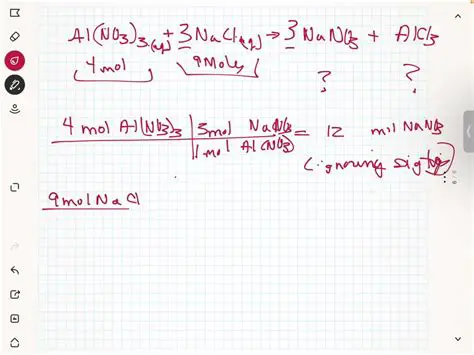 Al(NO3)3(aq) + 3NaCl(aq) → 3 NaNO3 + AlCl3
4mol 9Moles ? ?
4 mol Al(NO3)3 3mol NaNO3 = 12 mol NaNO3
1mol Al(NO3)
(ignoring sigfig)
9molNaCl